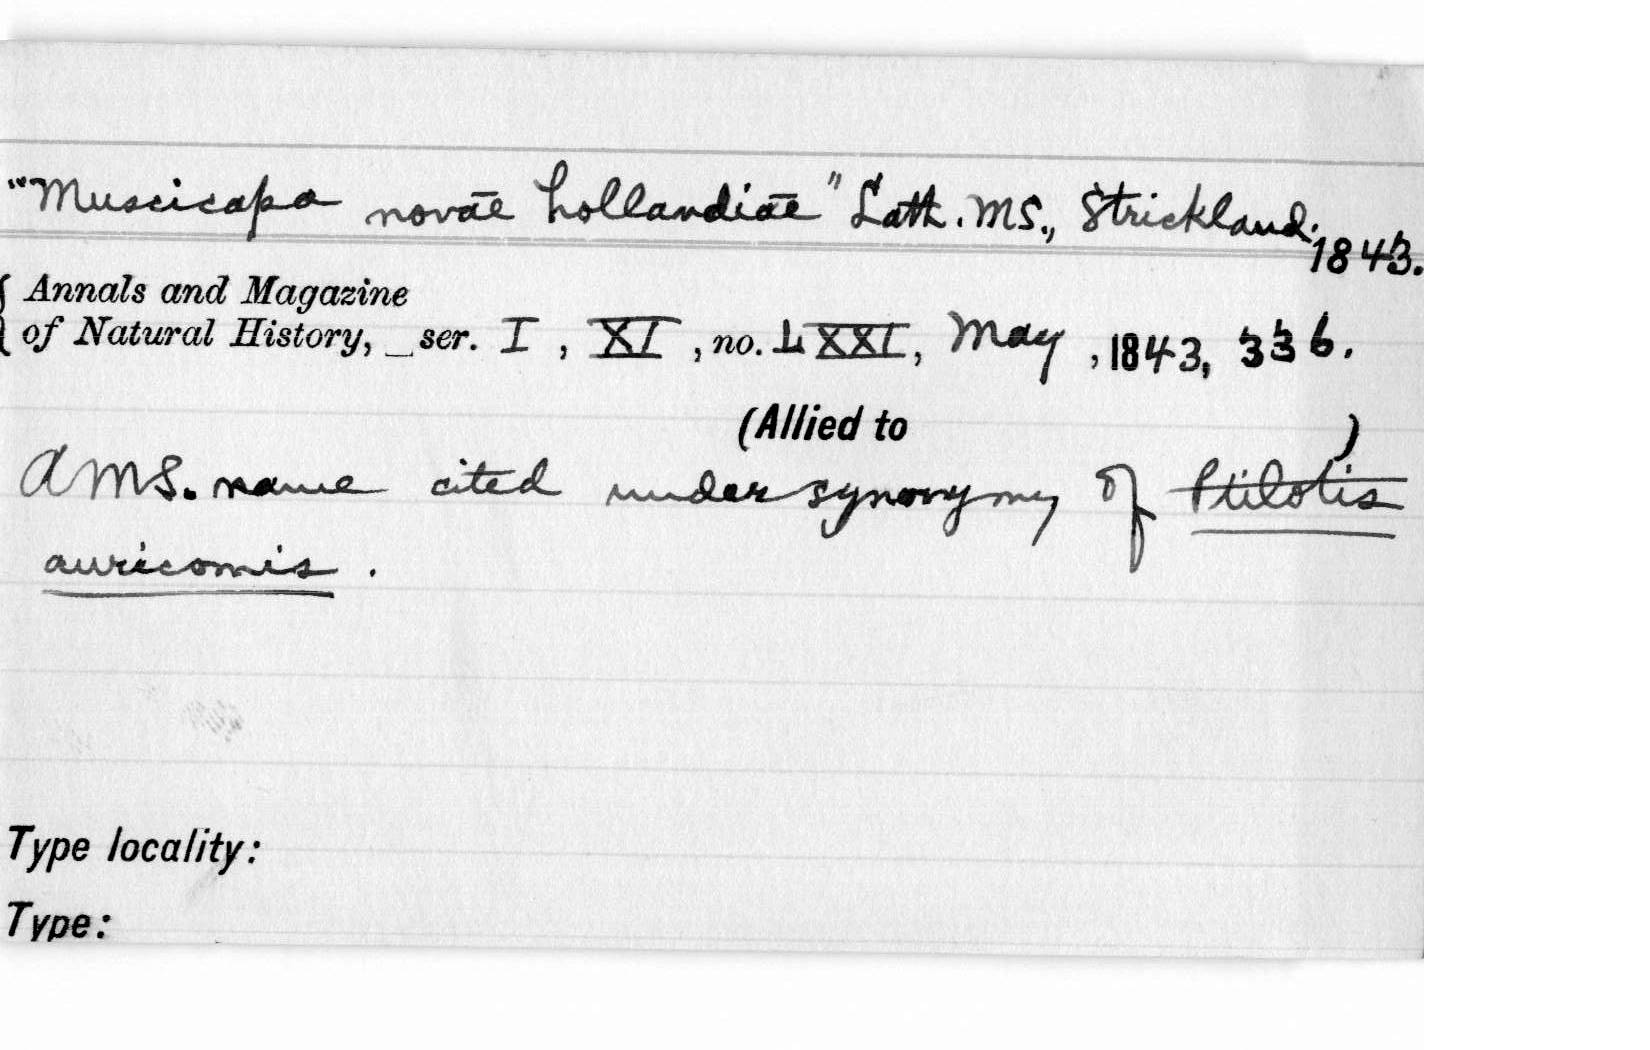 "Muscicapa novāe hollandiāe" Lath. MS., Strickland. 1843.
Annals and Magazine
of Natural History, _ser. I, XI, no. LXXI, May, 1843, 336.
(Allied to )
A MS. name cited under synonymy of Ptilotis
auricomis.
Type locality:
Type: